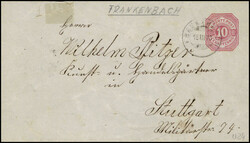 FRANKENBACH
10
Herrn
Wilhelm Pfitzer
Kunst- u. Handelsgärtner
in
Stuttgart
Militärstr. 74.